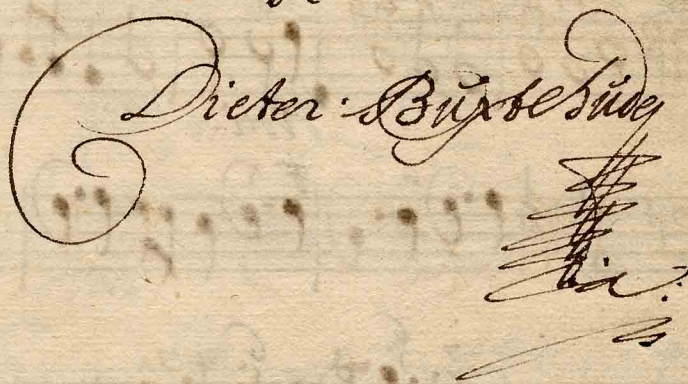 Dieter: Buxtehude